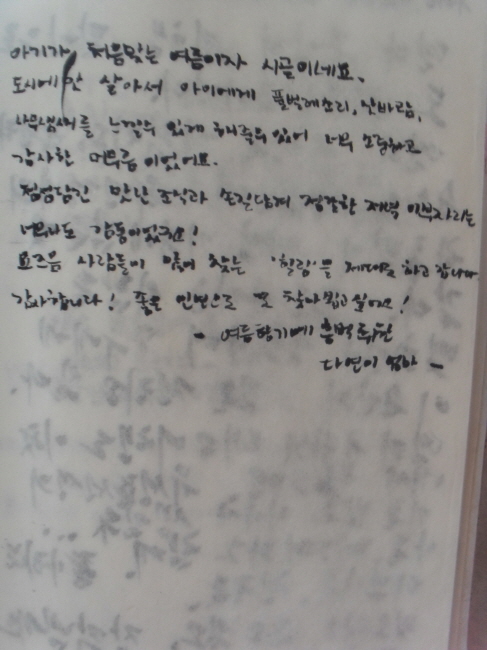 아기가 처음맞는 여름이자 시골이네요.
도시에만 살아서 아이에게 풀벌레소리, 산바람,
나무냄새를 느낄수 있게 해줄수있어 너무 소중하고
감사한 머무름이었어요.
정성담긴 맛난 조식과 손길담겨 정갈한 저녁 이부자리는
너무나도 감동이었구요!
요즈음 사람들이 많이 찾는 '힐링'을 제대로 하고 갑니다.
감사합니다! 좋은 인연으로 또 찾아뵙고 싶어요!
- 여름향기에 흠뻑취한
다연이 엄마 -